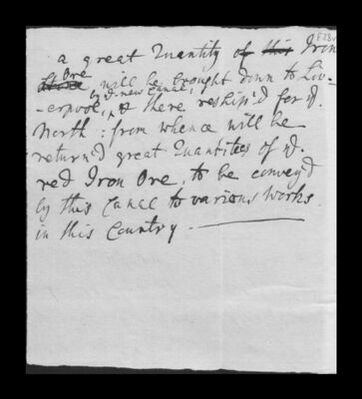 a great Quantity of this Iron
Stone Ore will be brought down to Liv-
by ye new Canal,
-erpool, & there reship'd for ye.
North : from whence will be
return'd great Quantities of ye.
red Iron Ore, to be convey'd
by this Canal to various Works
in this Country.